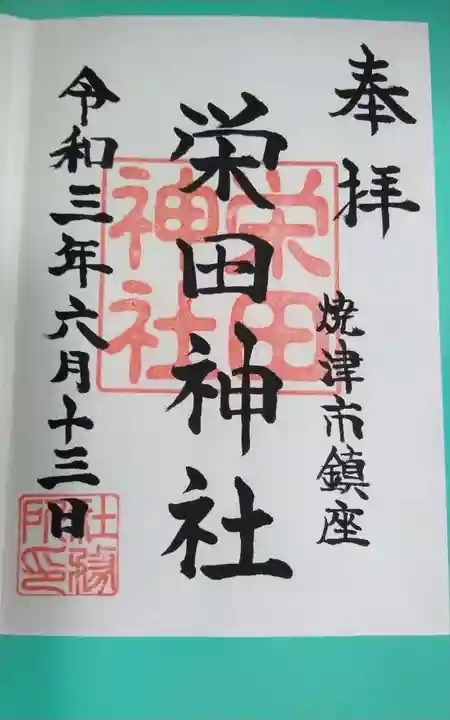 奉拝
焼津市鎮座
栄田神社
栄田神社
令和三年六月十三日
社務所印